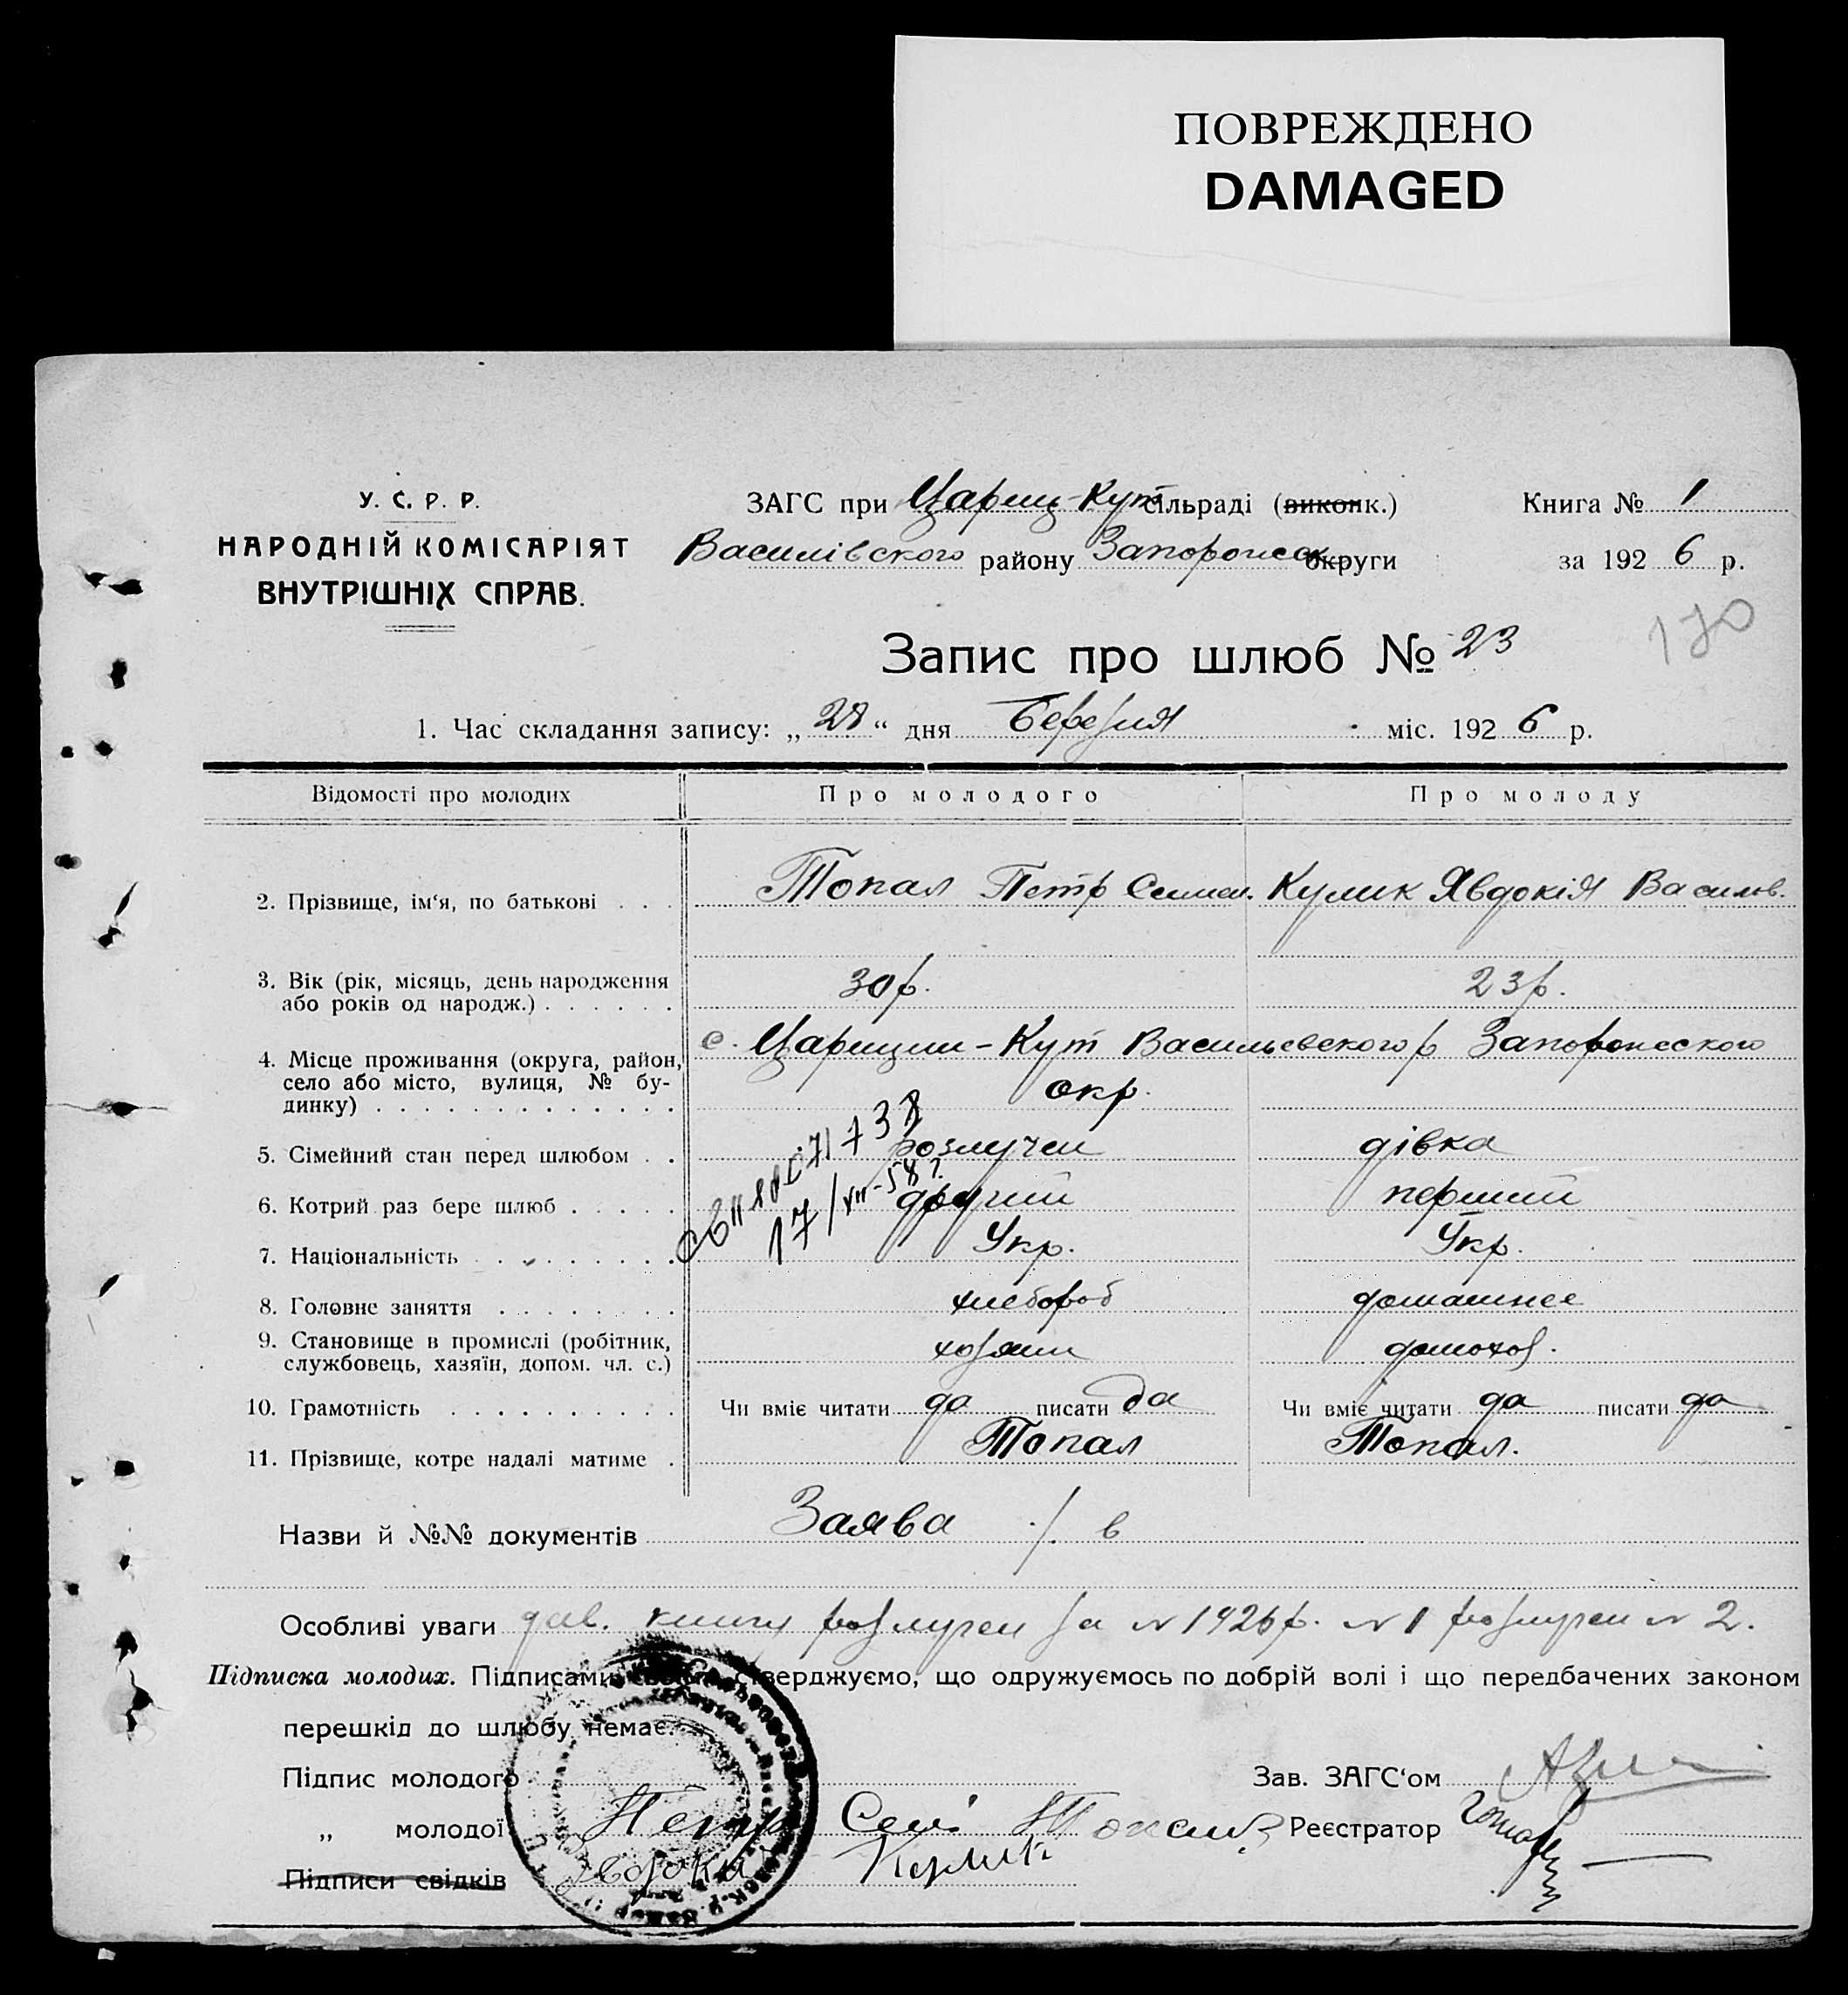 ПОВРЕЖДЕНО
DAMAGED
У. С. Р. Р.
НАРОДНІЙ КОМІСАРІЯТ
ВНУТРІШНІХ СПРАВ.
ЗАГС при Цариц-Кут сільраді (виконк.)
Василівского району Запорожск округи
Книга № 1
за 1926 р.
170
Запис про шлюб № 23
1. Час складання запису: „28“ дня Березня міс. 1926 р.
Відомості про молодих Про молодого Про молоду
2. Прізвище, ім‘я, по батькові . . . Топал Петр Семен. Кулик Явдокія Васил‌ов.
3. Вік (рік, місяць, день народження
або років од народж.) . . . . . . 30 р. 23 р.
4. Місце проживання (округа, район, с. Царицин-Кут Васильевского р Запорожского
село або місто, вулиця, № бу- окр.
динку) . . . . . . . . . . . . .
5. Сімейний стан перед шлюбом . . розлучен дівка
6. Котрий раз бере шлюб . . . . . другий перший
7. Національність . . . . . . . . . Укр. Укр.
17/VII-58 г.
8. Головне заняття . . . . . . . . хлебороб домашнее
9. Становище в промислі (робітник, хозяин домохоз.
службовець, хазяїн, допом. чл. с.)
10. Грамотність . . . . . . . . . . Чи вміє читати да писати да Чи вміє читати да писати да
11. Прізвище, котре надалі матиме . Топал Топал.
Назви й №№ документів Заява
Особливі уваги книги розлучен за 1926 р. № 1 розлучен № 2.
Підписка молодих. Підписами стверджуємо, що одружуємось по добрій волі і що передбачених законом
перешкід до шлюбу немає.
Підпис молодого
Зав. ЗАГС‘ом
„ молодої Петр Сем Топал
Реєстратор
Підписи свідків Кулик